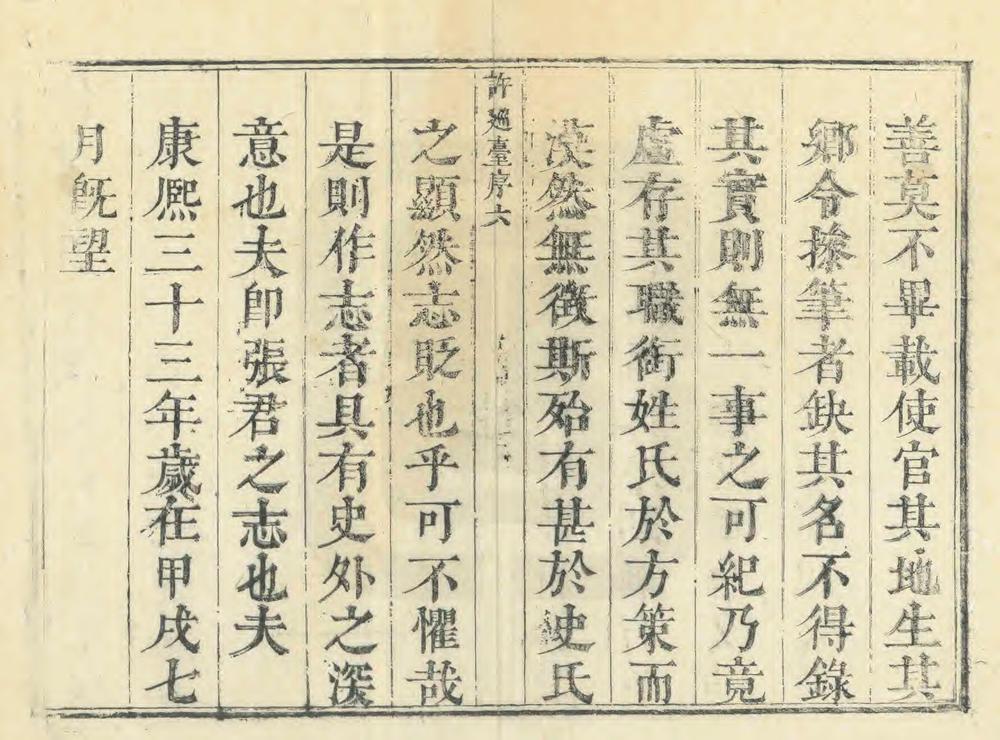 善莫不畢載使官其地生其
鄉令搽筆者缺其名不得錄
其實則無一事之可紀乃竟
虛存其職銜姓氏於方策而
漠然無徵斯殆有甚於史氏
許廵臺序六
之顯然志貶也乎可不懼哉
是則作志者具有史外之深
意也夫卽張君之志也夫
康熙三十三年歲在甲戌七
月旣望